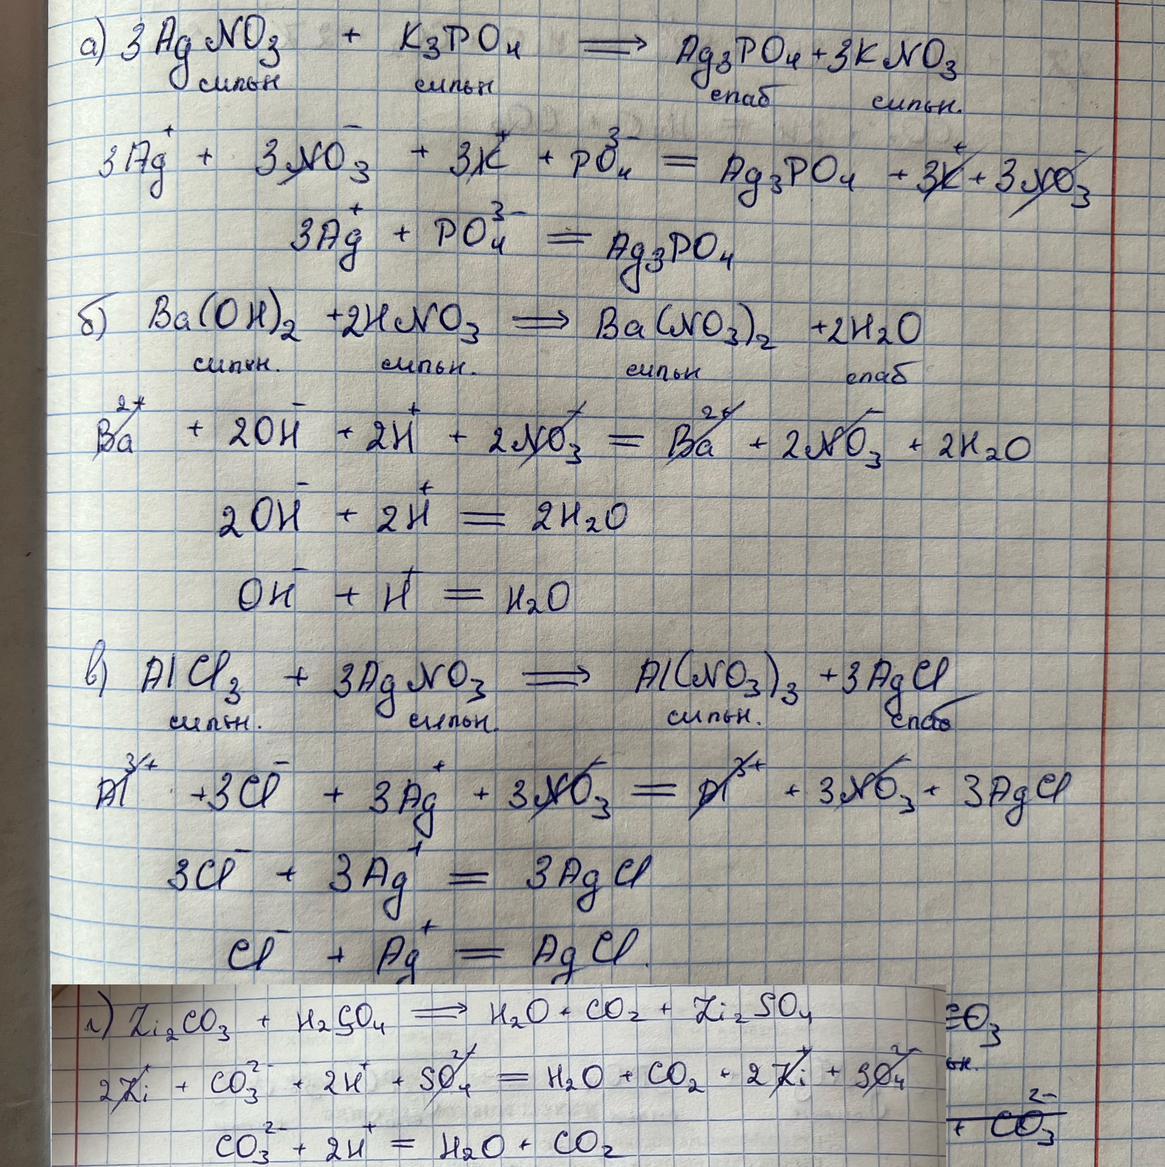 а) 3AgNO₃ + K₃PO₄ ⟹ Ag₃PO₄ + 3KNO₃
сильн сильн слаб сильн.
3Ag⁺ + 3NO₃⁻ + 3K⁺ + PO₄³⁻ = Ag₃PO₄ + 3K⁺ + 3NO₃⁻
3Ag⁺ + PO₄³⁻ = Ag₃PO₄
б) Ba(OH)₂ + 2HNO₃ ⟹ Ba(NO₃)₂ + 2H₂O
сильн. сильн. сильн слаб
Ba²⁺ + 2OH⁻ + 2H⁺ + 2NO₃⁻ = Ba²⁺ + 2NO₃⁻ + 2H₂O
2OH⁻ + 2H⁺ = 2H₂O
OH⁻ + H⁺ = H₂O
в) AlCl₃ + 3AgNO₃ ⟹ Al(NO₃)₃ + 3AgCl
сильн. сильн. сильн. слаб
Al³⁺ + 3Cl⁻ + 3Ag⁺ + 3NO₃⁻ = Al³⁺ + 3NO₃⁻ + 3AgCl
3Cl⁻ + 3Ag⁺ = 3AgCl
Cl⁻ + Ag⁺ = AgCl.
г) Li₂CO₃ + H₂SO₄ ⟹ H₂O + CO₂ + Li₂SO₄
2Li⁺ + CO₃²⁻ + 2H⁺ + SO₄²⁻ = H₂O + CO₂ + 2Li⁺ + SO₄²⁻
CO₃²⁻ + 2H⁺ = H₂O + CO₂
CO₃
ьн.
+ CO₃²⁻